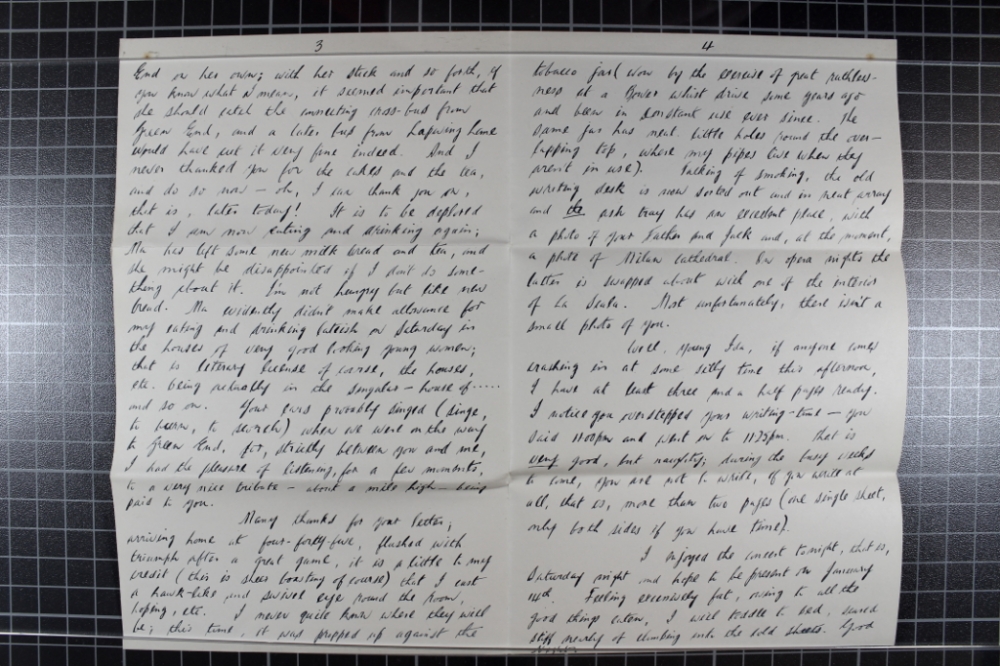 3
End on her own; with her stick and so forth, if
you know what I mean, it seemed important that
she should catch the connecting cross-bus from
Green End, and a later bus from
would have cut it very fine indeed. And I
never thanked you for the cakes and the tea,
and do so now — oh, I can thank you on,
that is, later today! It is to be deplored
that I am now eating and drinking again;
Ma has left some new milk bread and tea, and
she might be disappointed if I don't do some-
thing about it. I'm not hungry but like new
bread. Ma evidently didn't make allowance for
my eating and drinking latish on Saturday in
the houses of very good looking young women;
that is literary license of course, the houses,
etc. being actually in the singular — house of .....
and so on. Your ears probably singed (singe,
to burn, to scorch) when we were on the way
to Green End, for, strictly between you and me,
I had the pleasure of listening, for a few moments,
to a very nice tribute — about a mile high — being
paid to you.
Many thanks for your letter;
arriving home at four-forty-five, flushed with
triumph after a great game, it is a little to my
credit (this is sheer boasting of course) that I cast
a hawk-like and swivel eye round the room,
hoping, etc. I never quite know where they will
be; this time, it was propped up against the
4
tobacco jar (won by the exercise of great ruthless-
ness at a Gower whist drive some years ago
and been in constant use ever since. The
same jar has neat little holes round the over-
lapping top, where my pipes live when they
aren't in use). Talking of smoking, the old
writing desk is now sorted out and in neat array
and the ash tray has an excellent place, with
a photo of your Father and Jack and, at the moment,
a photo of Milan Cathedral. On opera nights the
latter is swapped about with one of the interior
of La Scala. Most unfortunately, there isn't a
small photo of you.
Well, young Ida, if anyone comes
crashing in at some silly time this afternoon,
I have at least three and a half pages ready.
I notice you overstepped your writing-time — you
said 11.00pm and went on to 11.25pm. That is
very good, but naughty; during the busy weeks
to come, you are not to write, if you write at
all, that is, more than two pages (one single sheet,
only both sides if you have time).
I enjoyed the concert tonight, that is,
Saturday night and hope to be present on January
14th. Feeling excessively fat, owing to all the
good things eaten, I will toddle to bed, scared
stiff nearly of climbing into the cold sheets. Good